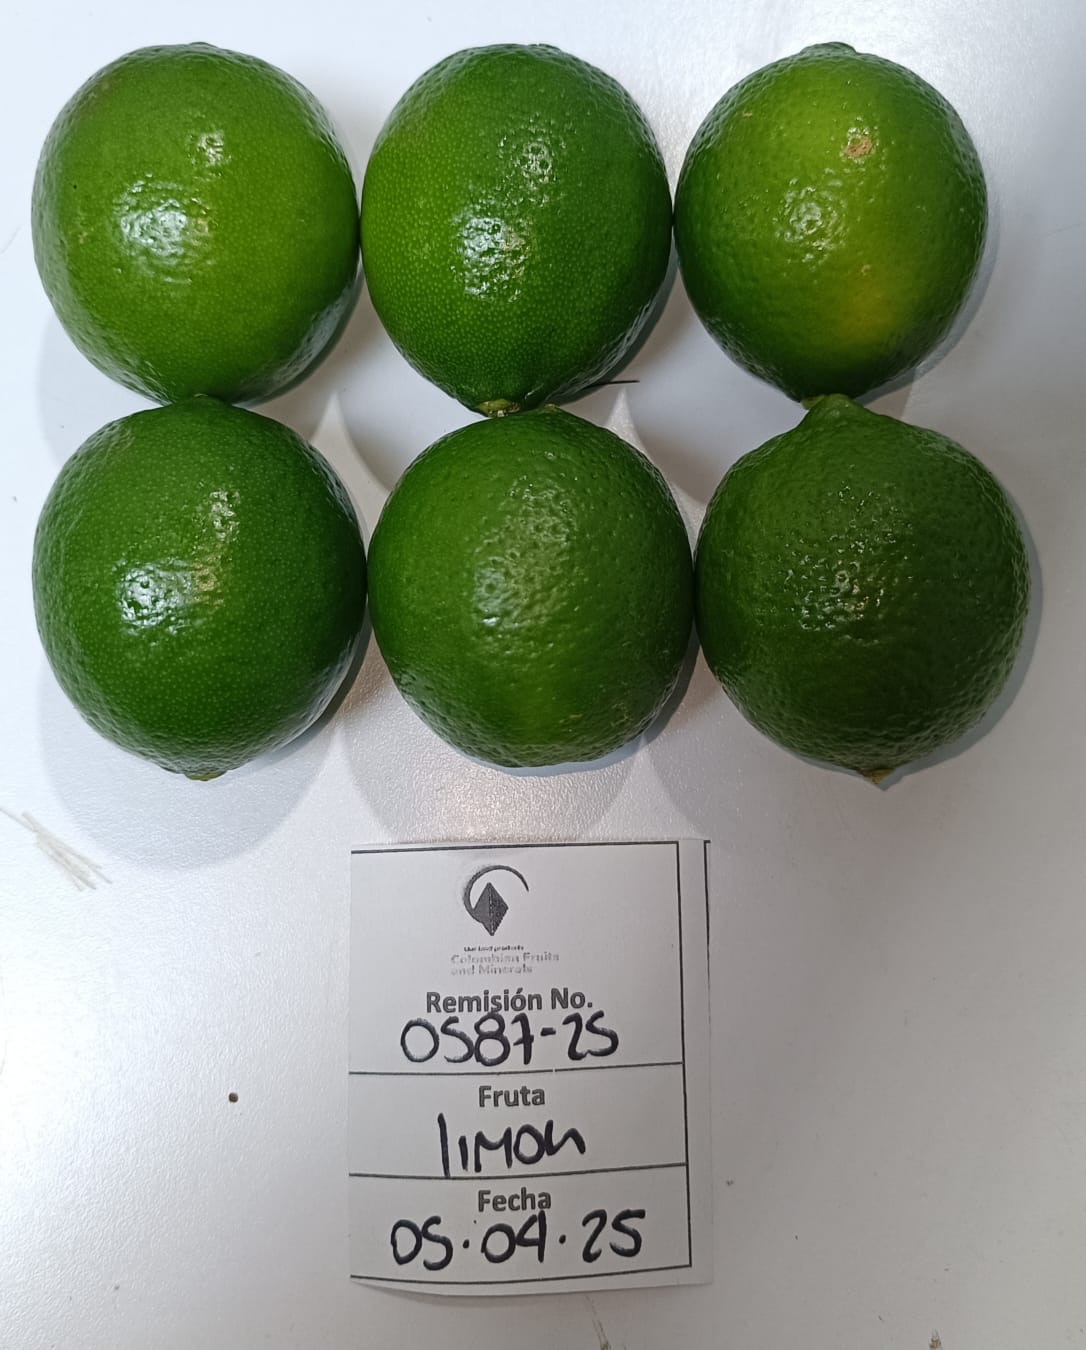 Colombian Fruits
and Minerals
Remisión No.
0587-25
Fruta
limon
Fecha
05.04.25